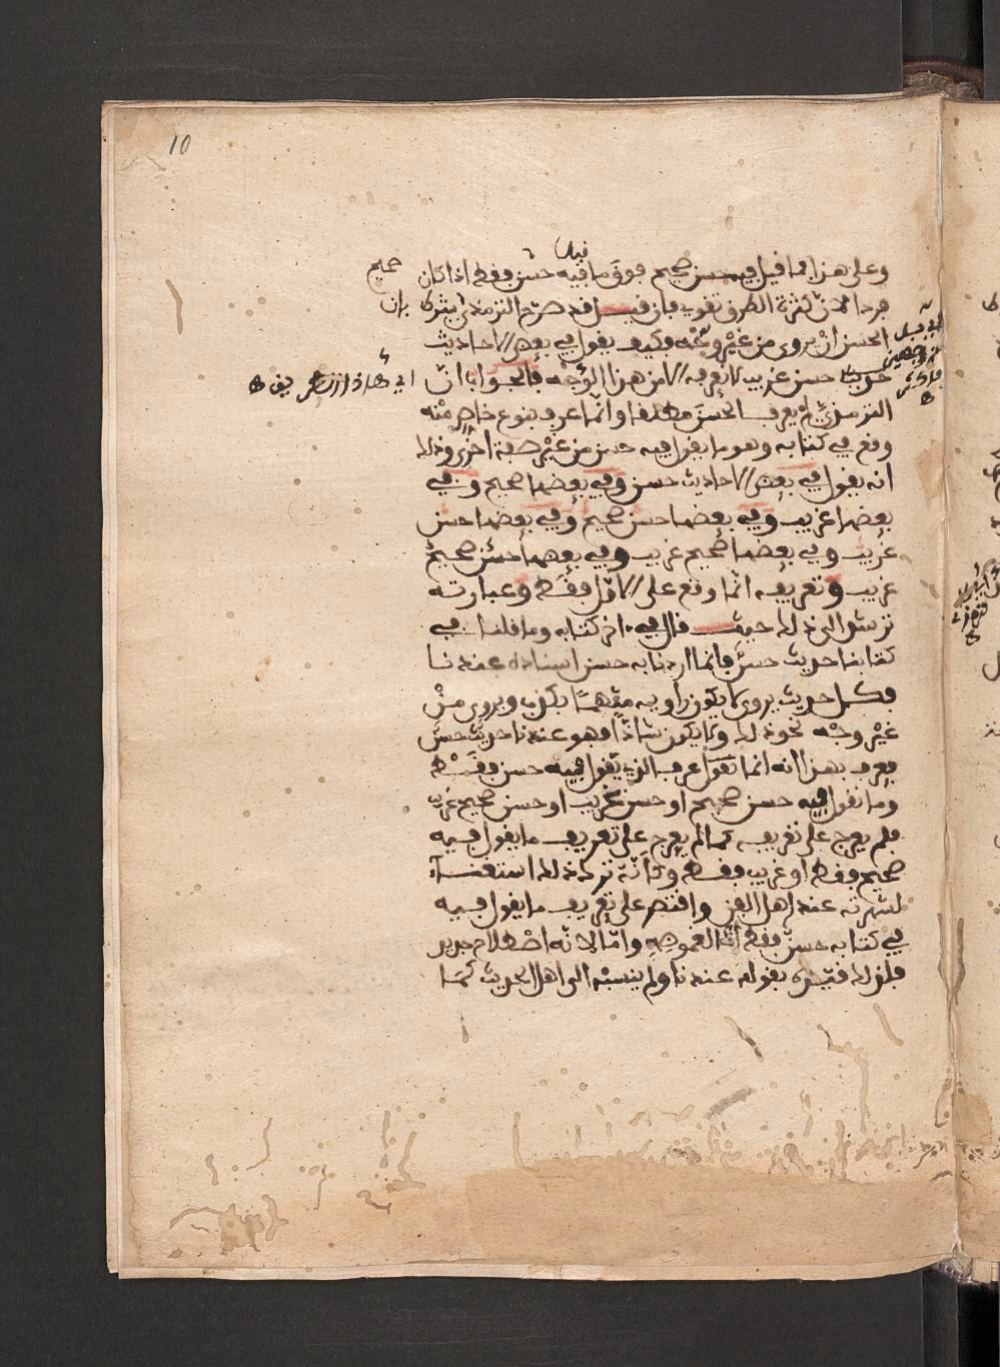 10
وعلى هذا فما قيل فيه حسن صحيح فوق ما قيل فيه حسن فقط اذا كان صحيح
فردا لان كثرة الطرق تقوي فان قيل قد صرح الترمذي بان شرط
الحسن ان يروى من غير وجه فكيف يقول في بعض الاحاديث
حديث حسن غريب لا نعرفه الا من هذا الوجه فالجواب ان
الترمذي لم يعرف الحسن مطلقا وانما عرف بنوع خاص منه
وقع في كتابه وهو ما يقول فيه حسن من غير صفة اخرى وذلك
انه يقول في بعض الاحاديث حسن وفي بعضها صحيح وفي
بعضها غريب وفي بعضها حسن صحيح وفي بعضها حسن
غريب وفي بعضها صحيح غريب وفي بعضها حسن صحيح
غريب وتعريفه انما وقع على الاول فقط وعبارته
ترشد الى ذلك حيث قال في اخر كتابه وما قلنا في
كتابنا حديث حسن فانما اردنا به حسن اسناده عندنا
فكل حديث يروى لا يكون راويه متهما بكذب ويروى من
غير وجه نحو ذلك ولا يكون شاذا فهو عندنا حديث حسن
فعرف بهذا انه انما عرف الذي يقول فيه حسن فقط
وما يقول فيه حسن صحيح او حسن غريب او حسن صحيح غريب
فلم يعرج على تعريفه كما لم يعرج على تعريف ما يقول فيه
صحيح فقط او غريب فقط وكانه ترك ذلك استغناء
لشهرته عند اهل الفن واقتصر على تعريف ما يقول فيه
في كتابه حسن فقط اما لغموضه واما لانه اصطلاح جديد
فلذلك قيده بقوله عندنا ولم ينسبه الى اهل الحديث كما